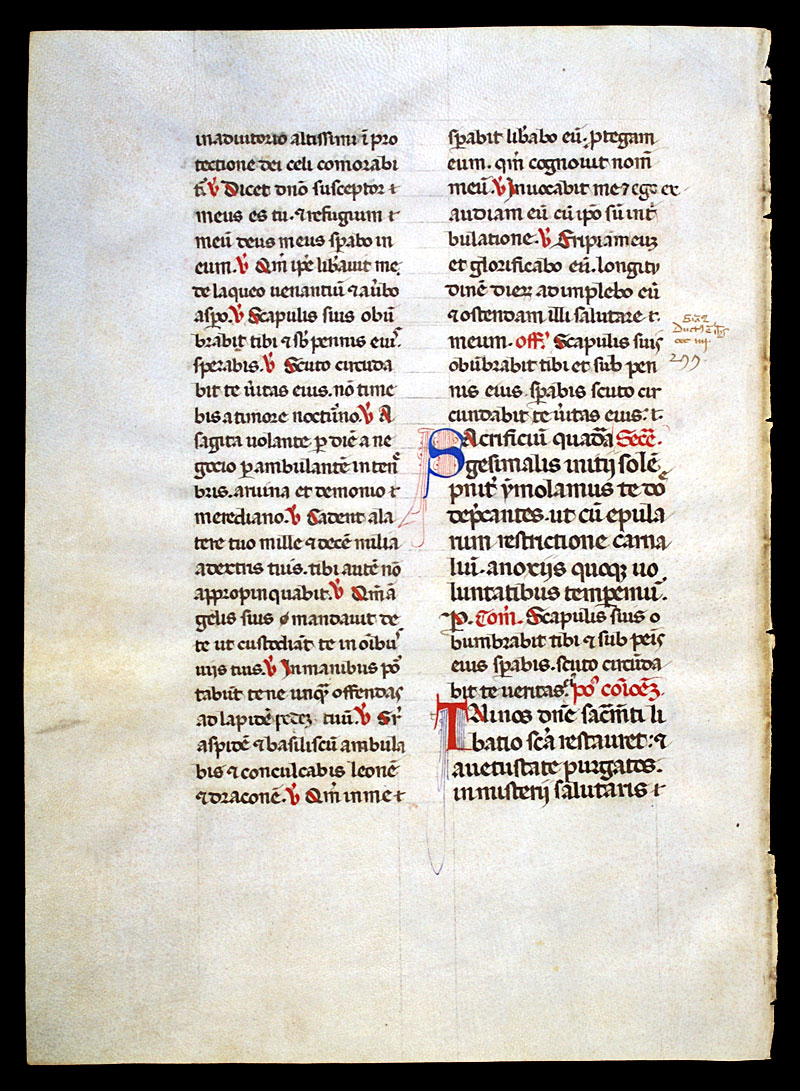 in adiutorio altissimi ī pro
tectione dei celi comorabi
t᷑. V̄ Dicet dn̄o susceptor ɫ
meus es tu. ⁊ refugium ɫ
meū deus meus sp̄abo in
eum. V̄ Qm̄ ip̄e lib̄auit me.
de laqueo uenantiū ⁊ a ūbo
asp̄o. V̄ Scapulis suis obū
brabit tibi ⁊ sb̄ pennis eiꝰ.
sperabis. V̄ Scuto circūda
bit te ūitas eius. nō time
bis a timore nocturno. V̄ A
sagita uolante p̄ diē a ne
gocio p̄ambulantē in tenē
bris. a ruina et demonio ɫ
merediano. V̄ Cadent a la
tere tuo mille ⁊ decē milia
a dextris tuis. tibi autē nō
appropinquabit. V̄ Qm̄ ā
gelis suis mandauit de
te ut custodiāt te in oīb'
uiis tuis. V̄ In manibus po᷑
tabūt te ne unq̄ offendas
ad lapidē pedeꝫ tuū. V̄ Sr̄
aspidē ⁊ basiliscū ambula
bis ⁊ conculcabis leonē
⁊ draconē. V̄ Qm̄ in me ɫ
sp̄abit lib̄abo eū. p̄tegam
eum. qm̄ cognouit nom̄
meū. V̄ Inuocabit me ⁊ ego ex
audiam eū cū ip̄o sū in t᷑
bulatione. V̄ Eripiam euꝫ
et glorificabo eū. longitu
dinē dieꝝ adimplebo eū
⁊ ostendam illi salutare ɫ.
meum. off. Scapulis suis
obūbrabit tibi et sub pen
nis eius sp̄abis scuto cir
cundabit te ūitas eius: ɫ.
Sacrificiū quadᷓa Sec̄.
gesimalis initij solē
pnit᷑ ymolamus te dō
dep̄cantes. ut cū epula
rum restrictione carna
liū. a noxijs quoqꝫ uo
luntatibus temperemꝰ.
P. Com̄. Scapulis suis o
bumbrabit tibi ⁊ sub pēis
eius sp̄abis. scuto circūda
bit te ueritas eiꝰ. po᷒ cōīoēꝫ
Tali nos dn̄e sac̄m̄ti li
batio sc̄a restauret: ⁊
a uetustate purgatos.
in misterij salutaris ɫ